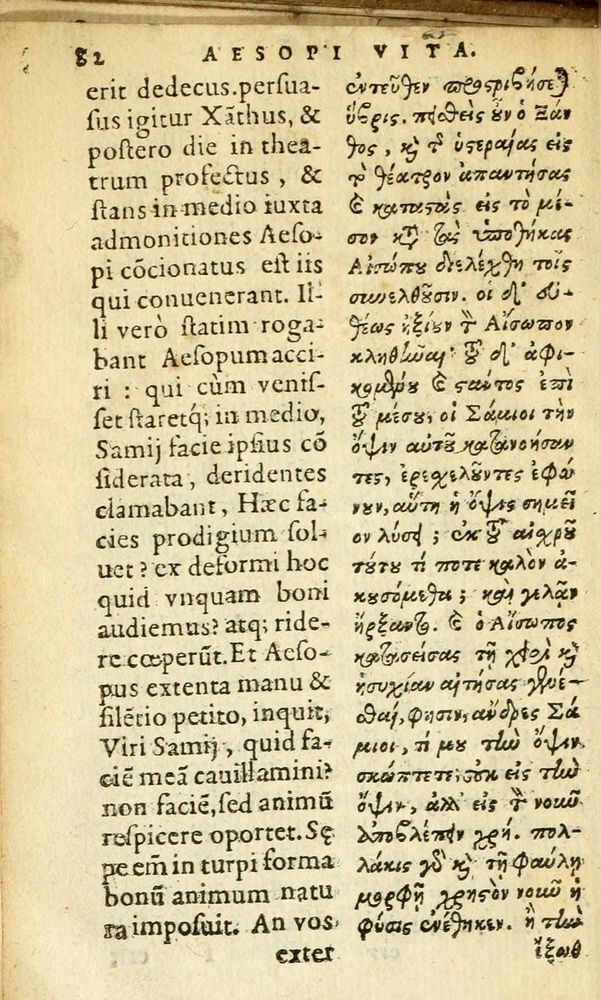 82 AESOPI VITA.
erit dedecus.persua-
sus igitur Xãthus, &
postero die in thea-
trum profectus, &
stans in medio iuxta
admonitiones Aeso-
pi cõcionatus est iis
qui conuenerant. Il-
li verò statim roga-
bant Aesopum acci-
ri : qui cùm venis-
set staretq; in medio,
Samij facie ipsius cõ
siderata, deridentes
clamabant, Hæc fa-
cies prodigium sol-
uet? ex deformi hoc
quid vnquam boni
audiemus? atq; ride-
re cœperũt. Et Aeso-
pus extenta manu &
silẽtio petito, inquit,
Viri Samij, quid fa-
ciẽ meã cauillamini?
non faciẽ, sed animũ
respicere oportet. Sę
pe em̃ in turpi forma
bonũ animum natu
ra imposuit. An vos
exter
ἐντεῦθεν
ὕβρις. πεισθεὶς οὖν ὁ Ξάν
θος, καὶ τῇ ὑστεραίας εἰς
τὸ θέατρον ἀπαντήσας
καὶ καταστὰς εἰς τὸ μέ-
σον κατὰ τὰς ὑποθήκας
Αἰσώπου διελέχθη τοῖς
συνελθοῦσιν. οἱ δ' εὐ-
θέως ἠξίουν τὸν Αἴσωπον
κληθῆναι. τοῦ δ' ἀφι-
κομένου καὶ στάντος ἐπὶ
τοῦ μέσου, οἱ Σάμιοι τὴν
ὄψιν αὐτοῦ κατανοήσαν
τες, ἐρεχελοῦντες ἐφώ
νουν, αὕτη ἡ ὄψις σημεῖ
ον λύσει; ἐκ τοῦ αἰσχροῦ
τούτου τί ποτε καλὸν ἀ-
κουσόμεθα; καὶ γελᾶν
ἤρξαντο. καὶ ὁ Αἴσωπος
κατασείσας τῇ χειρὶ καὶ
ἡσυχίαν αἰτήσας γενέ-
σθαι, φησὶν, ἄνδρες Σά
μιοι, τί μου τὴν ὄψιν
σκώπτετε; οὐκ εἰς τὴν
ὄψιν, ἀλλ' εἰς τὸν νοῦν
ἀποβλέπειν χρή. πολ-
λάκις γὰρ καὶ τῇ φαύλῃ
μορφῇ χρηστὸν νοῦν ἡ
φύσις ἐνέθηκεν. ἢ τὴν
ἔξωθ